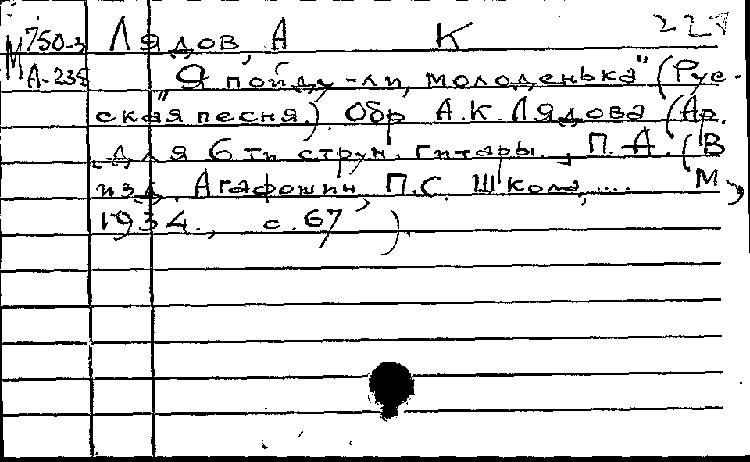 М 750-3 Лядов, А К
А-235 "Я пойду-ли, молоденька" (Рус-
ская песня.) Обр А.К. Лядова (Ар.
для 6 ти струн. гитары. П. А. (В
изд. Агафошин, П.С. Школа, ... М.,
1934., с. 67 ).